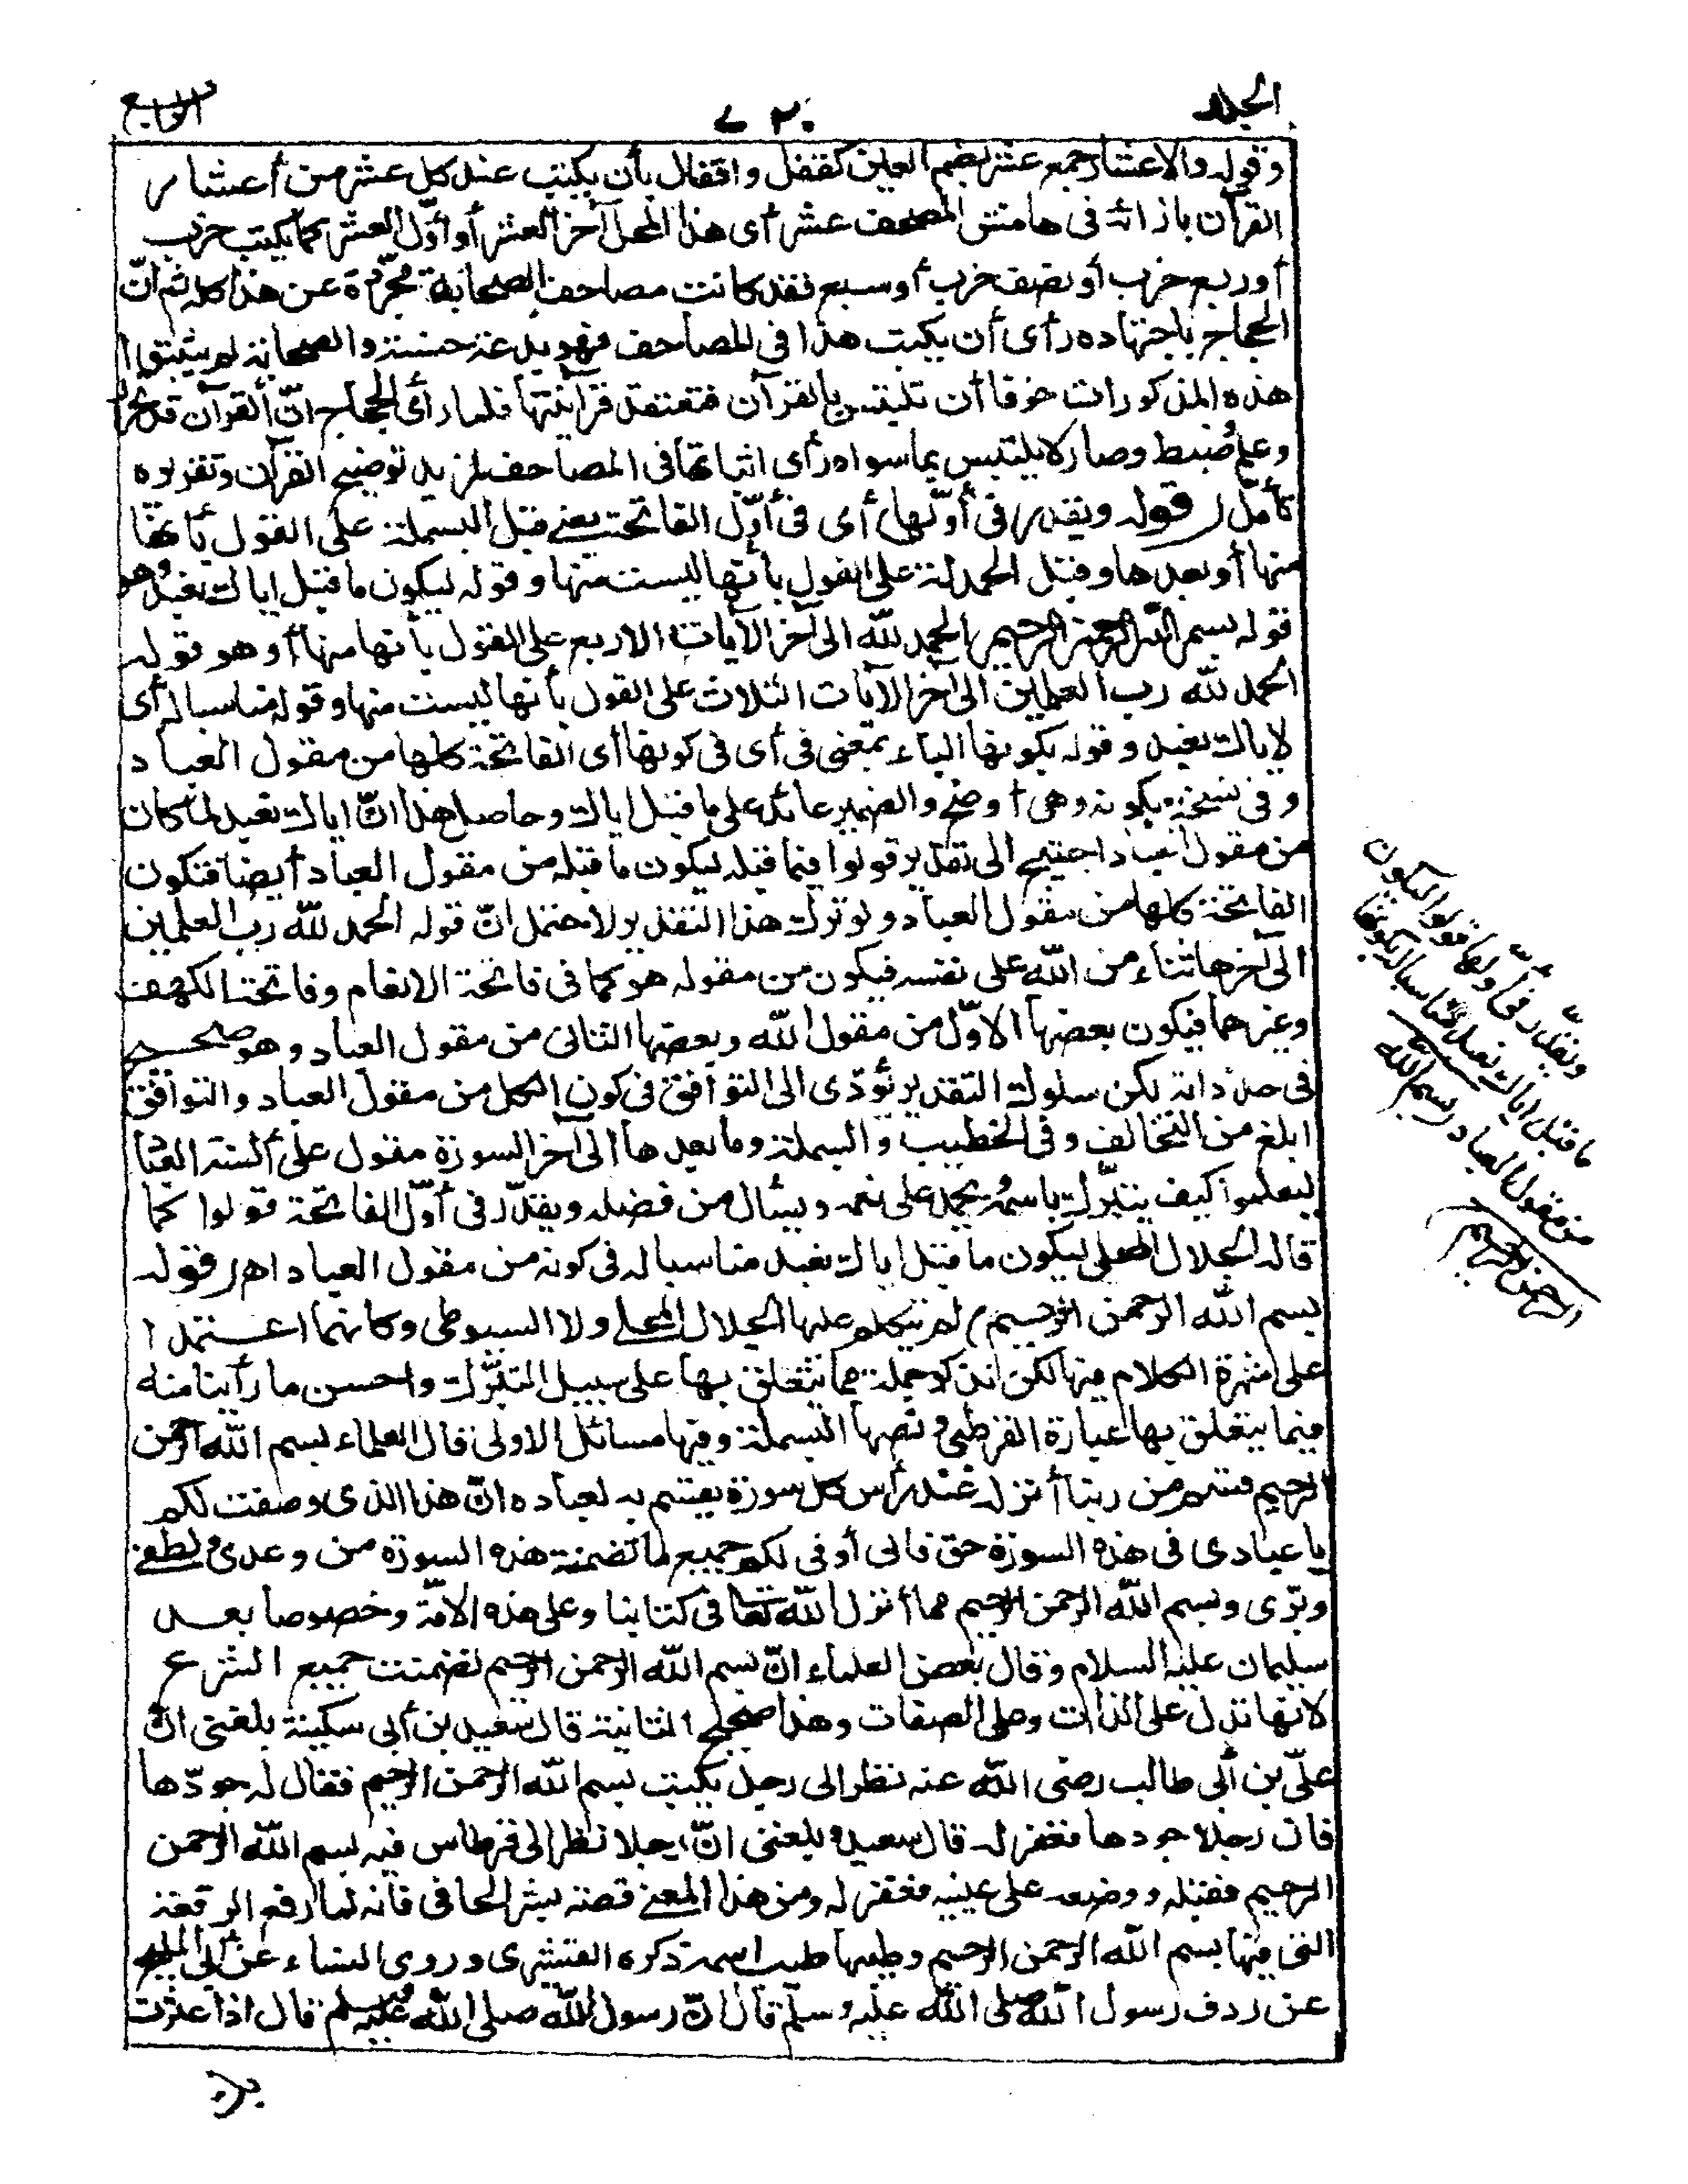 الجلد
٧٢٠
الرابع
وقوله والاعشار جمع عشر بضم العين كقفل واقفال بأن يكتب عند كل عشر من أعشار
القرآن بازائه فى هامش المصحف عشر أى هذا المحل آخر العشر أو أوّل العشر كما يكتب حزب
أو ربع حزب أو نصف حزب أو سبع فقد كانت مصاحف الصحابة مجرّدة عن هذا كله ثم انّ
الحجاج باجتهاده رأى أن يكتب هذا فى المصاحف فهو بدعة حسنة والصحابة لم يثبتوا
هذه المذكورات خوفا أن تلتبس بالقرآن فتعتقد قرآنيتها فلما رأى الحجاج انّ القرآن قد
وعلم وضبط وصار لا يلتبس بما سواه رأى اثباتها فى المصاحف لمزيد توضيح القرآن وتقريره
تأمّل (قوله ويقدر فى أوّلها) أى فى أوّل الفاتحة يعنى قبل البسملة على القول بأنها
منها أو بعدها وقبل الحمدلة على القول بأنها ليست منها وقوله ليكون ما قبل اياك نعبد وهو
قوله بسم الله الرحمن الرحيم الحمد لله الى آخر الآيات الاربع على القول بأنها منها أو هو قوله
الحمد لله رب العلمين الى آخر الآيات الثلاث على القول بأنها ليست منها وقوله مناسبا له أى
لاياك نعبد وقوله بكونها الباء بمعنى فى أى فى كونها أى الفاتحة كلها من مقول العباد
وفى نسخة بكونه وهى أوضح والضمير عائد على ما قبل اياك وحاصل هذا انّ اياك نعبد لما كان
من مقول العباد احتيج الى تقدير قولوا فيما قبله ليكون ما قبله من مقول العباد أيضا فتكون
الفاتحة كلها من مقول العباد ولو ترك هذا التقدير لاحتمل انّ قوله الحمد لله رب العلمين
الى آخرها ثناء من الله على نفسه فيكون من مقوله هو كما فى فاتحة الانعام وفاتحة الكهف
وغيرهما فيكون بعضها الاوّل من مقول الله وبعضها الثانى من مقول العباد وهو صحيح
فى حد ذاته لكن سلوك التقدير يؤدى الى التوافق فى كون الكل من مقول العباد والتوافق
ابلغ من التخالف وفى الخطيب والبسملة وما بعدها الى آخر السورة مقول على ألسنة العباد
ليعلموا كيف يتبرّك باسمه ويحمد على نعمه ويسأل من فضله ويقدّر فى أوّل الفاتحة قولوا كما
قاله الجلال المحلى ليكون ما قبل اياك نعبد مناسبا له فى كونه من مقول العباد اه (قوله
بسم الله الرحمن الرحيم) لم يتكلم عليها الجلال المحلى ولا السيوطى وكانهما اعتمدا
على شهرة الكلام فيها لكن لنذكر جملة مما يتعلق بها على سبيل التبرّك واحسن ما رأينا منه
فيما يتعلق بها عبارة القرطبى ونصها البسملة وفيها مسائل الاولى قال العلماء بسم الله الرحمن
الرحيم قسم من ربنا أنزله عند رأس كل سورة يقسم به لعباده انّ هذا الذى وصفت لكم
يا عبادى فى هذه السورة حق فانى أوفى لكم جميع ما تضمنته هذه السورة من وعدى ولطفى
وبرّى وبسم الله الرحمن الرحيم مما أنزل الله تعا فى كتابنا وعلى هذه الامّة وخصوصا بعد
سليمان عليه السلام وقال بعض العلماء انّ بسم الله الرحمن الرحيم تضمنت جميع الشرع
لانها تدل على الذات وعلى الصفات وهذا صحيح الثانية قال سعيد بن أبى سكينة بلغنى انّ
علىّ بن أبى طالب رضى الله عنه نظر الى رجل يكتب بسم الله الرحمن الرحيم فقال له جوّدها
فان رجلا جودها فغفر له قال سعيد وبلغنى انّ رجلا نظر الى قرطاس فيه بسم الله الرحمن
الرحيم فقبله ووضعه على عينيه فغفر له ومن هذا المعنى قصة بشر الحافى فانه لما رفع الرقعة
التى فيها بسم الله الرحمن الرحيم وطيبها طيب اسمه ذكره القشيرى وروى النساء عن أبى المليح
عن ردف رسول الله صلى الله عليه وسلم قال انّ رسول الله صلى الله عليه وسلم قال اذا عثرت
ويقدّر فى أوّلها قولوا ليكون
ما قبل اياك نعبد مناسبا له بكونها
من مقول العباد بسم الله
الرحمن الرحيم